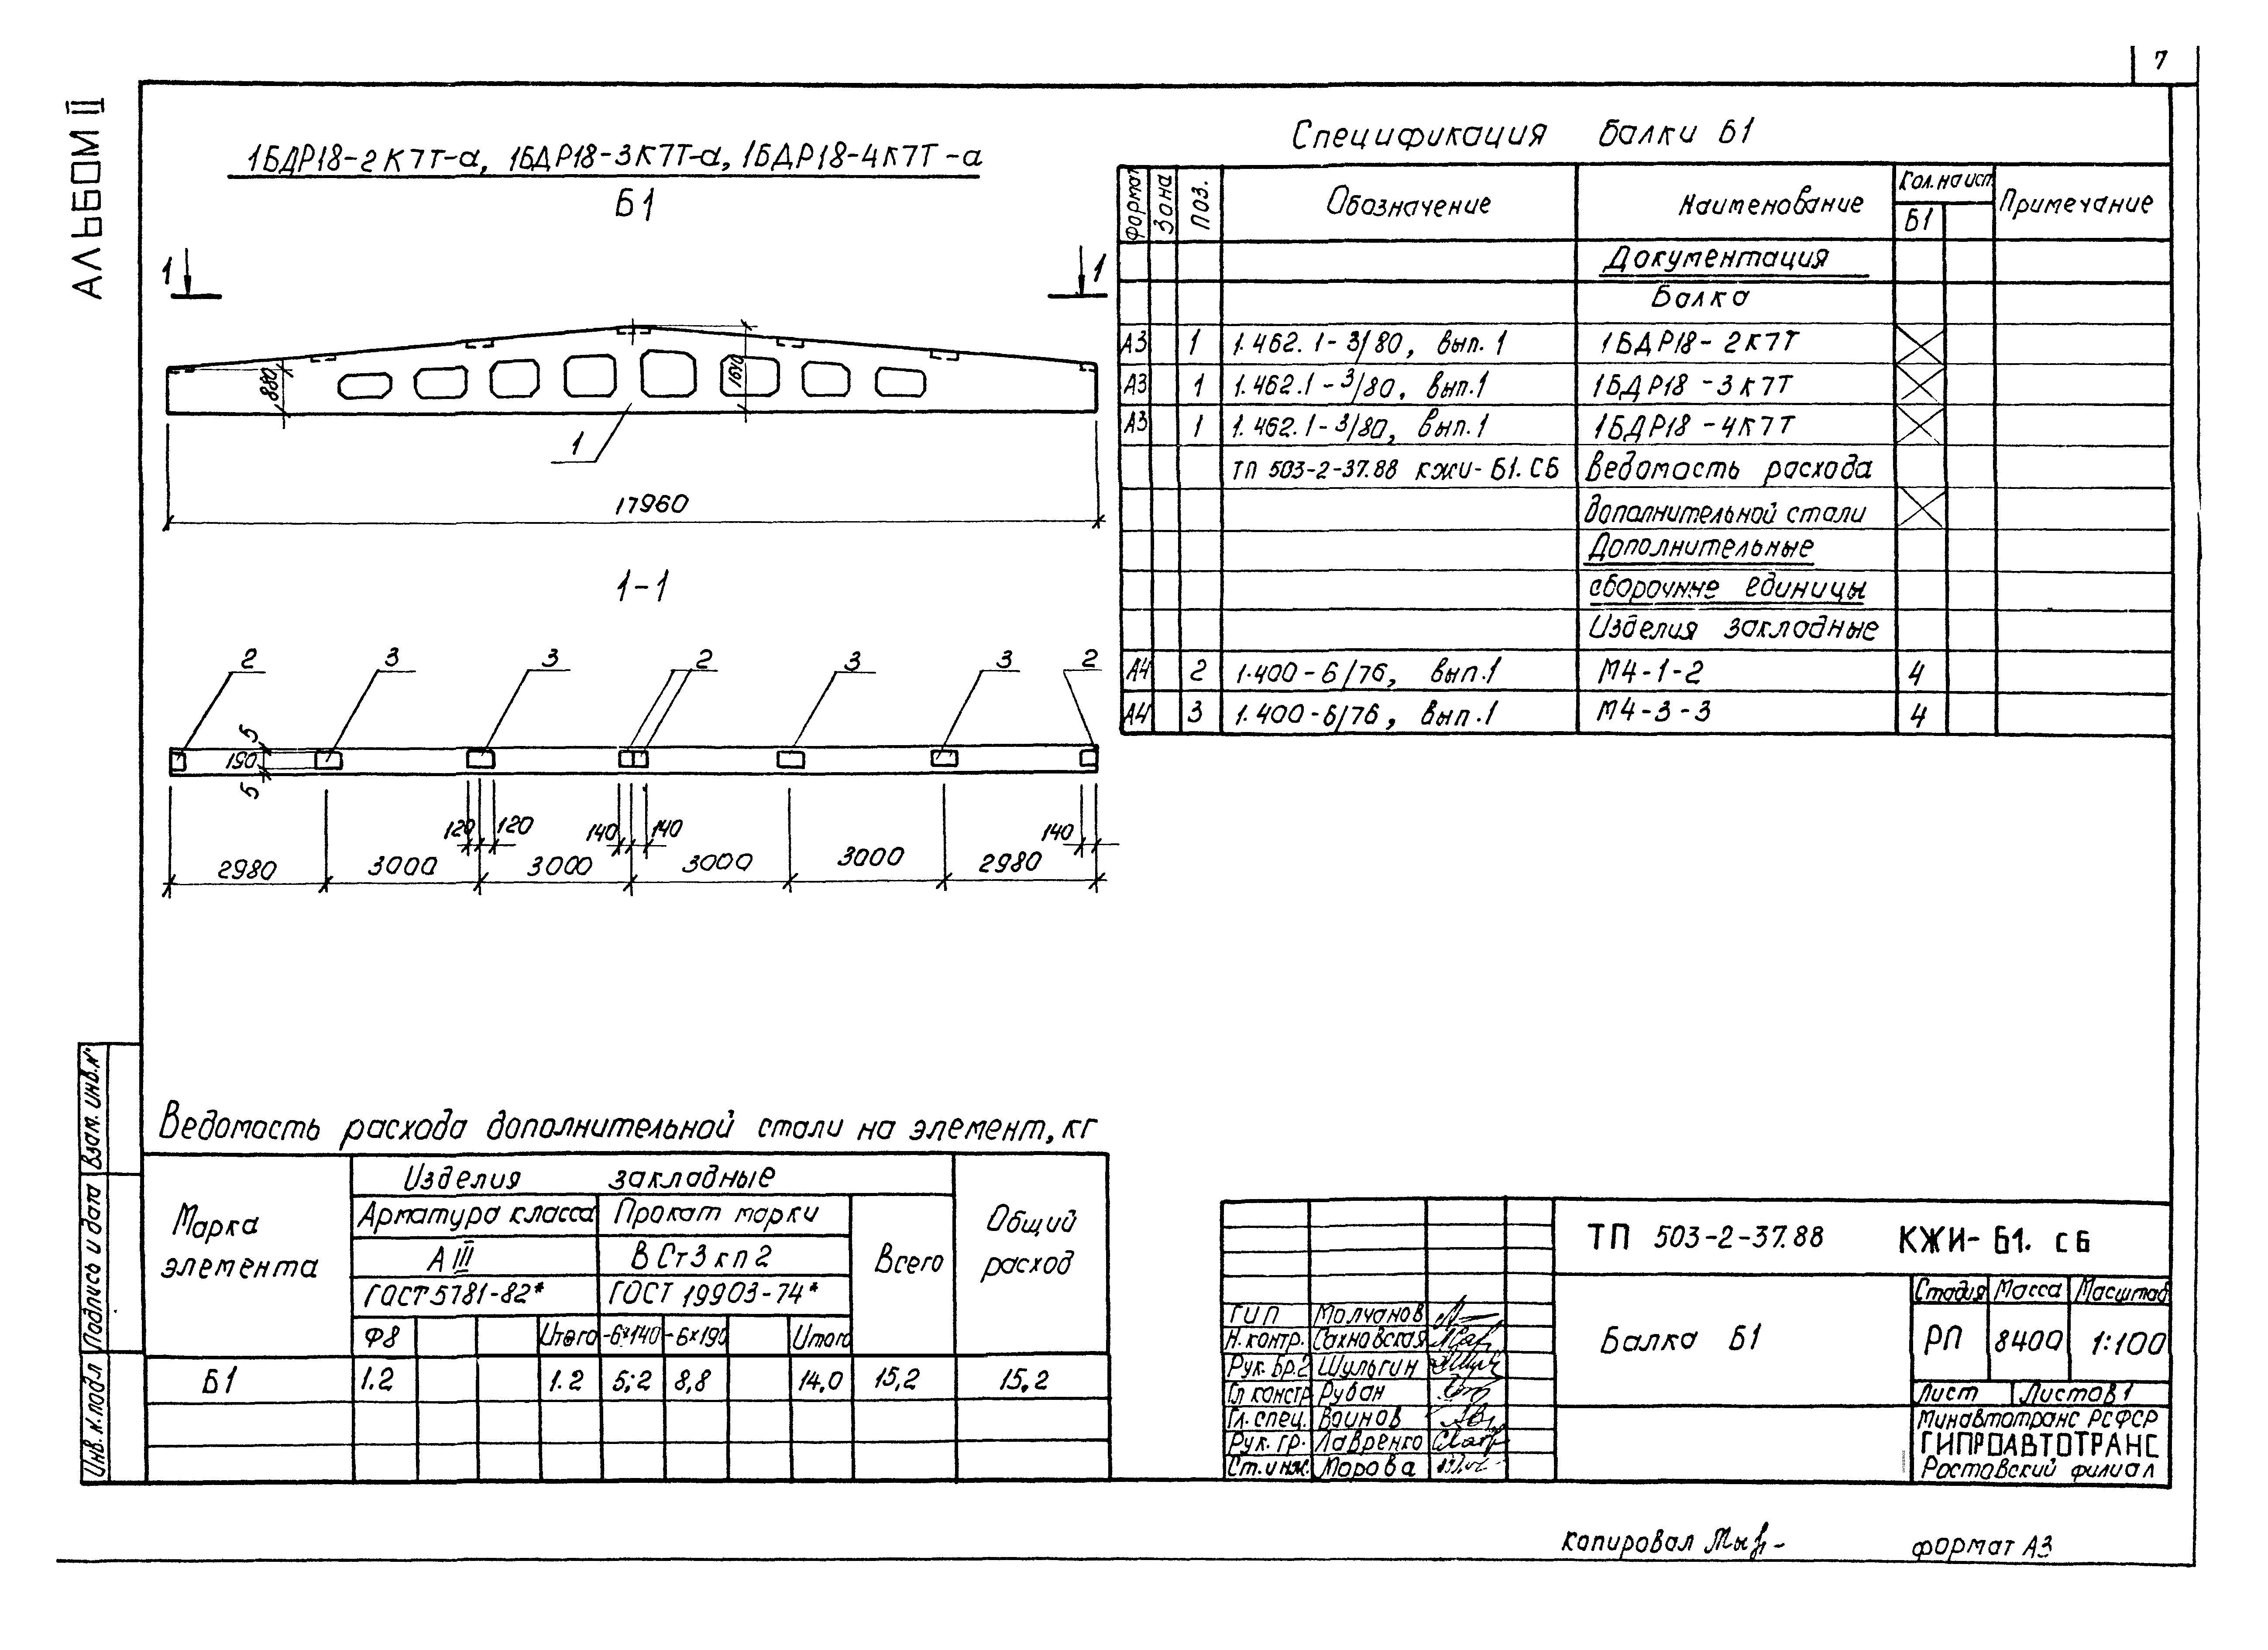 7
АЛЬБОМ II
1БДР18-2К7Т-а, 1БДР18-3К7Т-а, 1БДР18-4К7Т-а
Б1
1 1
880
1610
1
17960
1-1
2 3 3 2 3 3 2
5
190
5
120 120 140 140 140
2980 3000 3000 3000 3000 2980
Спецификация балки Б1
Формат Зона Поз. Обозначение Наименование Кол. на исп. Примечание
Б1
Документация
Балка
А3 1 1.462.1-3/80, вып.1 1БДР18-2К7Т
А3 1 1.462.1-3/80, вып.1 1БДР18-3К7Т
А3 1 1.462.1-3/80, вып.1 1БДР18-4К7Т
ТП 503-2-37.88 КЖИ-Б1.СБ Ведомость расхода
дополнительной стали
Дополнительные
сборочные единицы
Изделия закладные
А4 2 1.400-6/76, вып.1 М4-1-2 4
А4 3 1.400-6/76, вып.1 М4-3-3 4
Ведомость расхода дополнительной стали на элемент, кг
Марка элемента
Изделия закладные
Общий расход
Арматура класса Прокат марки
Всего
А III ВСт3кп2
ГОСТ 5781-82* ГОСТ 19903-74*
Ф8 Итого -6×140 -6×190 Итого
Б1 1.2 1.2 5,2 8,8 14,0 15,2 15,2
Взам. инв.№
Подпись и дата
Инв. № подл
ТП 503-2-37.88 КЖИ-Б1.СБ
Балка Б1
Стадия Масса Масштаб
РП 8400 1:100
Лист Листов 1
Минавтотранс РСФСР
ГИПРОАВТОТРАНС
Ростовский филиал
ГИП Молчанов
Н.контр. Сахновская
Рук.бр.2 Шульгин
Гл констр Рубан
Гл. спец. Воинов
Рук. гр. Лавренко
Ст.инж. Морова
Копировал
формат А3